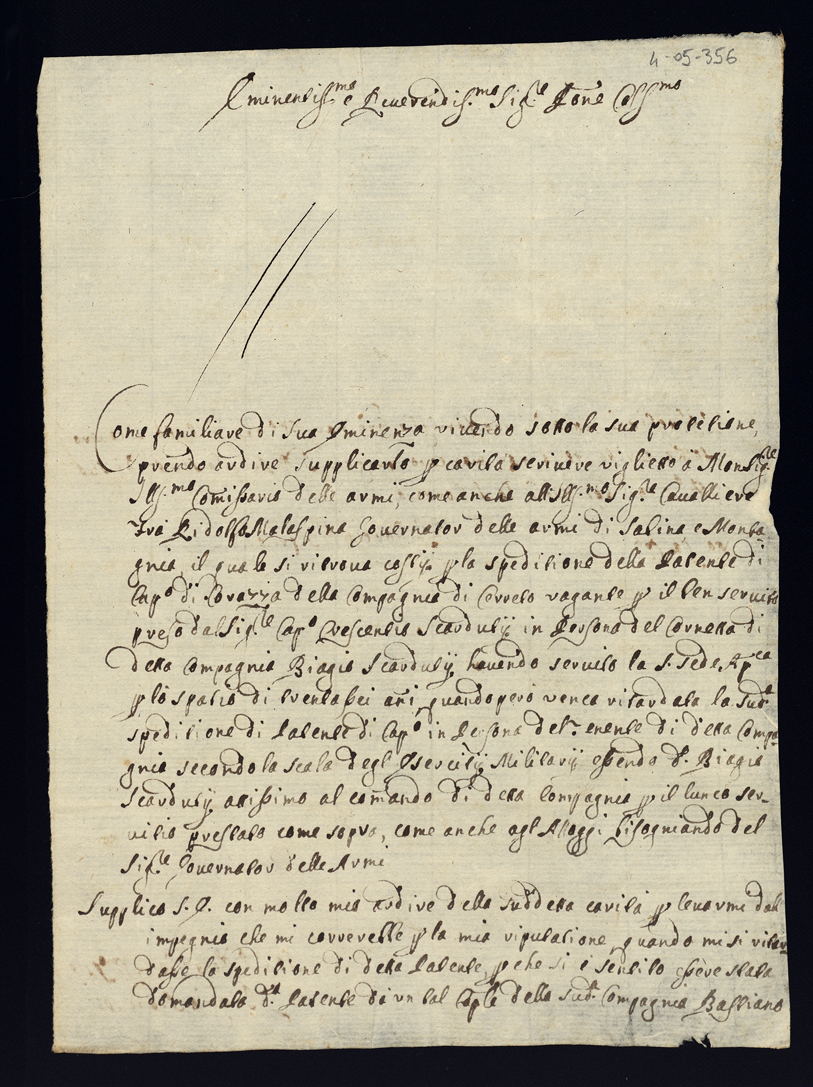 4-05-356
Eminentiss.mo e Reverendis.mo Sig.re Pone Coll.mo
Come familiare di Sua Eminenza vivendo sotto la sua protetione,
prendo ardire supplicarlo p carità scrivere viglietto à Monsig.re
Ill.mo Comissario delle armi, come anche all Ill.mo Sig.re Cavalliere
Frà Ridolfo Malaspina Governator delle armi di Sabina, e Monta
gnia, il quale si ritrova costì p la speditione della Patente di
Cap.o di Corazza della Compagnia di Correto vagante p il ben servito
preso dal Sig.re Cap.o Crescentio Scardulij in Persona del Cornetta di
detta Compagnia Biagio Scardulij, havendo servito la S. Sede Ap.ca
p lo spatio di trentasei añi, quando però venea ritardata la sud.a
speditione di Patente di Cap.o in Persona del Tenente di detta Compa
gnia secondo la scala degl Eserciti Militarij essendo d.o Biagio
Scardulij attissimo al comando di detta Compagnia p il lunco ser-
vitio prestato come sopra, come anche agl Aloggi bisogniando del
Sig.re Governator delle Armi
Supplico S. E. con molto mio ardire della suddetta carità p levarmi dall
impegnio che mi correrebbe p la mia riputatione, quando mi si ritar
dasse la speditione di detta Patente, p che si è sentito essere stata
domandata d.a Patente di un tal della sud.a Compagnia Bastiano